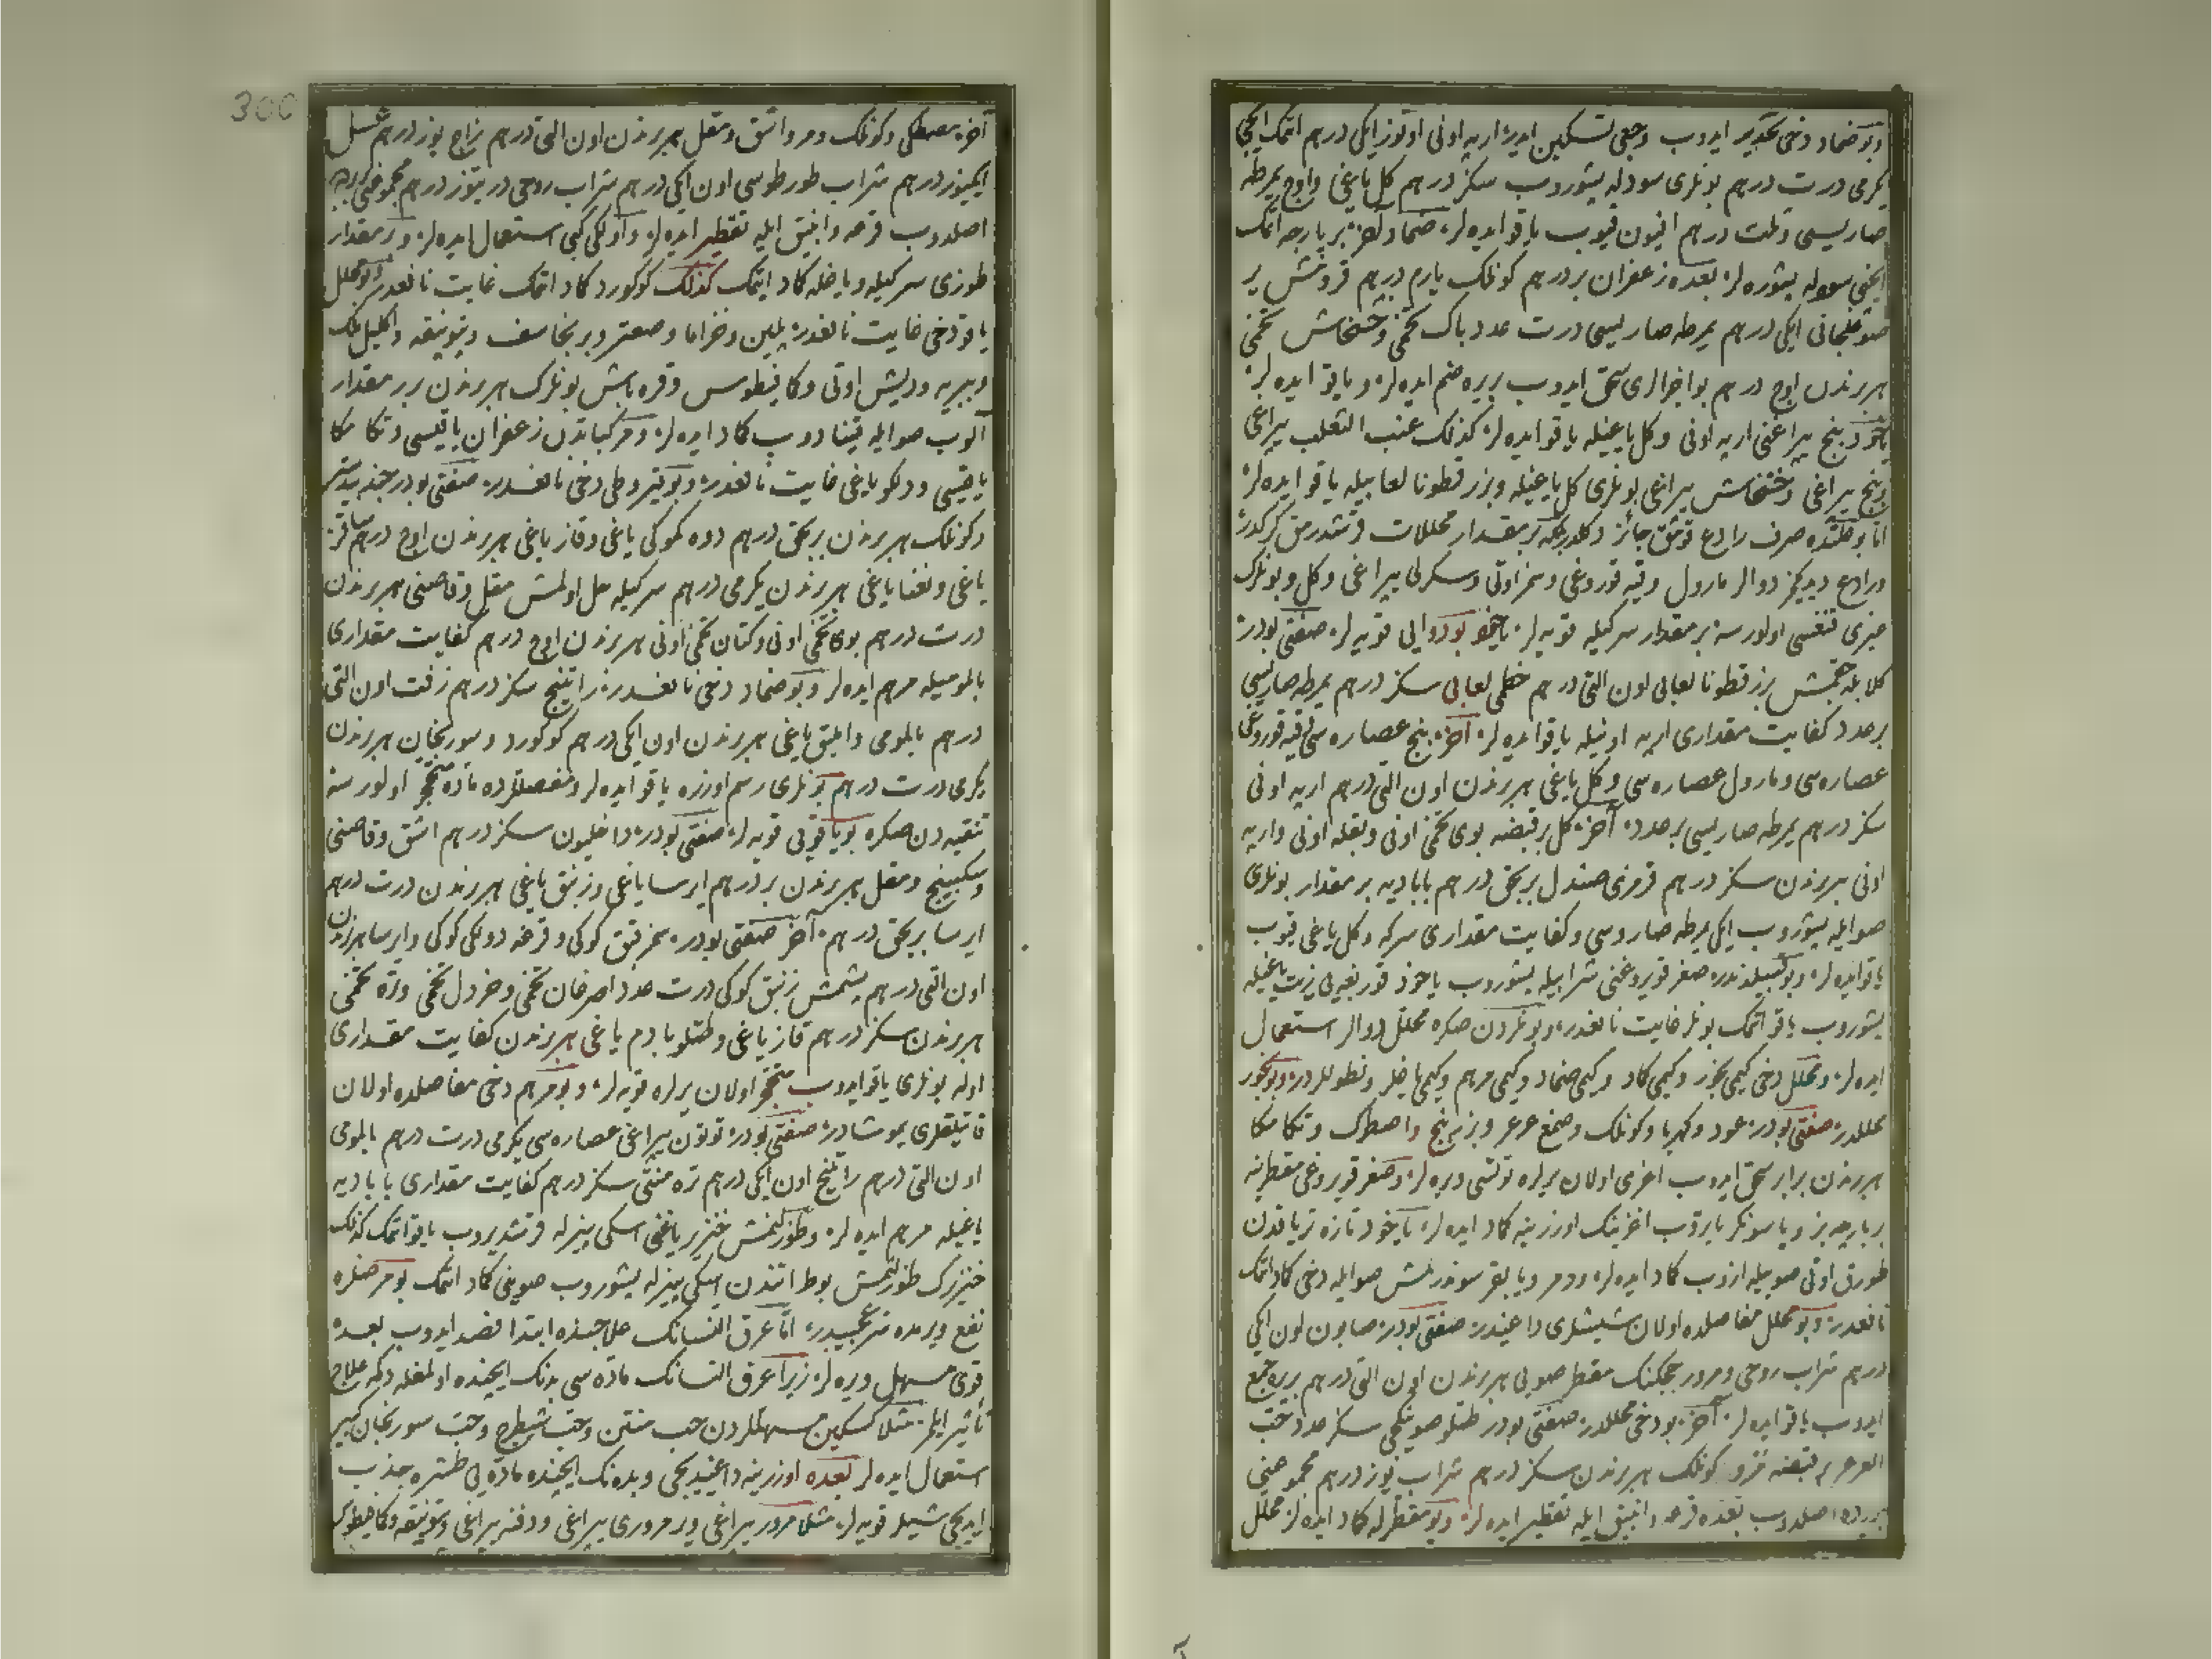 وبو ضماد دخی تخدیر ایدوب وجعی تسکین ایدر اربه اونی اوتوز ایکی درهم اتمک ایچی
یکرمی درت درهم بونلری سودله پشوروب سکز درهم کل یاغی واوچ یمرطه
صاریسی وثلث درهم افیون قیوب یاقو ایده لر ضماد آخر بر پارجه اتمک
ایچنی سودله پشوره لر بعده زعفران بر درهم کونلک یارم درهم
ایکی درهم یمرطه صاریسی درت عدد باک تخمی وخشخاش تخمی
هربرندن اوچ درهم بو اجزالری سحق ایدوب بریره ضم ایده لر ویاقو ایده لر
یاخود بنج یپراغنی اربه اونی وکل یاغیله یاقو ایده لر کذلک عنب الثعلب یپراغی
وبنج یپراغی وخشخاش یپراغی بونلری کل یاغیله وبزر قطونا لعابیله یاقو ایده لر
اما بو علتده صرف رادع قومق جائز دکلدر بلکه بر مقدار محللات قرشدرمق کرکدر
ورادع دیدیکمز دوالر مارول وقیه قوروغی وسمز اوتی وسکرلی یپراغی وکل وبونلرک
جزی قنغسی اولورسه بر مقدار سرکیله قویه لر یاخود بو دوایی قویه لر صفتی بودر
کلابله چقمش بزر قطونا لعابی اون التی درهم خطمی لعابی سکز درهم یمرطه صاریسی
بر عدد کفایت مقداری اربه اونیله یاقو ایده لر آخر بنج عصاره سی قیه قوروغی
عصاره سی ومارول عصاره سی وکل یاغی هربرندن اون التی درهم اربه اونی
سکز درهم یمرطه صاریسی بر عدد آخر کل بر قبضه بوی تخمی اونی وبقله اونی واربه
اونی هربرندن سکز درهم قرمزی صندل بربحق درهم بابادیه بر مقدار بونلری
صوایله پشوروب ایکی یمرطه صاروسی وکفایت مقداری سرکه وکل یاغی قیوب
یاقو ایده لر صغر قویروغنی شرابیله پشوروب یاخود قوربغه یی زیت یاغیله
پشوروب یاقو اتمک بونلر غایت نافعدر وبونلردن صکره محلل دوالر استعمال
ایده لر ومحلل دخی کیمی بخور وکیمی کاد وکیمی ضماد وکیمی مرهم وکیمی یاغلر ونطوللردر وبو بخور
محللدر صفتی بودر عود وکهربا وکونلک وصمغ عرعر وبزر بنج واصطرک وتکامکا
هربرندن برابر سحق ایدوب اغری اولان یرلره توتسی ویره لر وصغر قویروغی مقطرینه
بر پارچه بز ویا سونکر بایروب اغزینک اوزرینه کاد ایده لر یاخود تازه تریاقدن
طورق اوتی صوییله ازوب کاد ایده لر ودمر ویا بقر سوندرلمش صوایله دخی کاد اتمک
نافعدر وبو محلل مفاصلده اولان شیشلری داغیدر صفتی بودر صابون اون ایکی
درهم شراب روحی ومرور چچکنک مقطر صویی هربرندن اون التی درهم بریره جمع
ایدوب یاقو ایده لر آخر بو دخی محللدر صفتی بودر طتلو صو ینکجی سکز عدد حب
العرعر بر قبضه مر وکونلک هربرندن سکز درهم شراب یوز درهم مجموعینی
بریرده اصلدوب بعده قرعه وانبیق ایله تقطیر ایده لر وبو مقطرله کاد ایده لر محلل
300
آخر مصطکی وکونلک ومر واشق ومقل هربرندن اون التی درهم زاج یوز درهم عسل
ایکیوز درهم شراب طورطوسی اون ایکی درهم شراب روحی درتیوز درهم مجموعنی بریره
اصلدوب قرعه وانبیق ایله تقطیر ایده لر واولکی کبی استعمال ایده لر وبر مقدار
طوزی سرکیله ویاغله کاد ایتمک کذلک کوکورد کاد اتمک غایت نافعدر وبو محلل
یاقو دخی غایت نافعدر یلمین وخزاما وصعتر وبرنجاسف وبتونیقه واکلیل ملک
وبیریه ودلیش اوتی وکافیطوس وقره باش بونلرک هربرندن برر مقدار
آلوب صوایله قیناردوب کاد ایده لر ومرکباتدن زعفران یاقیسی وتکامکا
یاقیسی ودلکو یاغی غایت نافعدر وبو قیروطی دخی نافعدر صفتی بودر جند بیدستر
وکونلک هربرندن بربحق درهم دوه کموکی یاغی وقاز یاغی هربرندن اوچ درهم
یاغی ونفط یاغی هربرندن یکرمی درهم سرکیله حل اولمش مقل وقاصنی هربرندن
درت درهم بوی تخمی اونی وکتان تخمی اونی هربرندن اوچ درهم کفایت مقداری
بالمومیله مرهم ایده لر وبو ضماد دخی نافعدر راتینج سکز درهم زفت اون التی
درهم بالمومی وایلیق یاغی هربرندن اون ایکی درهم کوکورد وسورنجان هربرندن
یکرمی درت درهم بونلری رسم اوزره یاقو ایده لر ومفصللرده ماده متحجر اولورسه
تنقیه دن صکره بو یاقویی قویه لر صفتی بودر داخلیون سکز درهم اشق وقاصنی
وسکبینج ومقل هربرندن بر درهم ایرسا یاغی وزنبق یاغی هربرندن درت درهم
ایرسا بربحق درهم آخر صفتی بودر کوکی وقرغه دولکی کوکی وایرسا هربرندن
اون التی درهم پشمش زنبق کوکی درت عدد اصرغان تخمی وخردل تخمی وتره تخمی
هربرندن سکز درهم قاز یاغی وطتلو بادم یاغی هربرندن کفایت مقداری
اوله بونلری یاقو ایدوب متحجر اولان یرلره قویه لر وبو مرهم دخی مفاصلده اولان
قاتیلقلری یومشادر صفتی بودر توتون یپراغی عصاره سی یکرمی درت درهم بالمومی
اون التی درهم راتینج اون ایکی درهم تره منتی سکز درهم کفایت مقداری بابادیه
یاغیله مرهم ایده لر وطوزلنمش خنزیر یاغنی اسکی پینرله قرشدیروب یاقو اتمک کذلک
خنزیرک طوزلنمش بوط اتندن اسکی پینرله پشوروب صوینی کاد اتمک بو مرضلره
نفع ویرمده سر عجیبدر اما عرق النسانک علاجنده ابتدا فصد ایدوب بعده
قوی مسهل ویره لر زیرا عرق النسانک ماده سی بدنک ایچنده اولمغله دکمه علاج
تأثیر ایلمز مثلا کسکین مسهللردن حب منتن وحب شیطرج وحب سورنجان کبیر
استعمال ایده لر بعده اوزرینه داغیدیجی وبدنک ایچنده ماده یی طشره جذب
ایدیجی شیلر قویه لر مثلا مرور یپراغی ویر مروری یپراغی ودفنه یپراغی وبتونیقه وکافیطوس